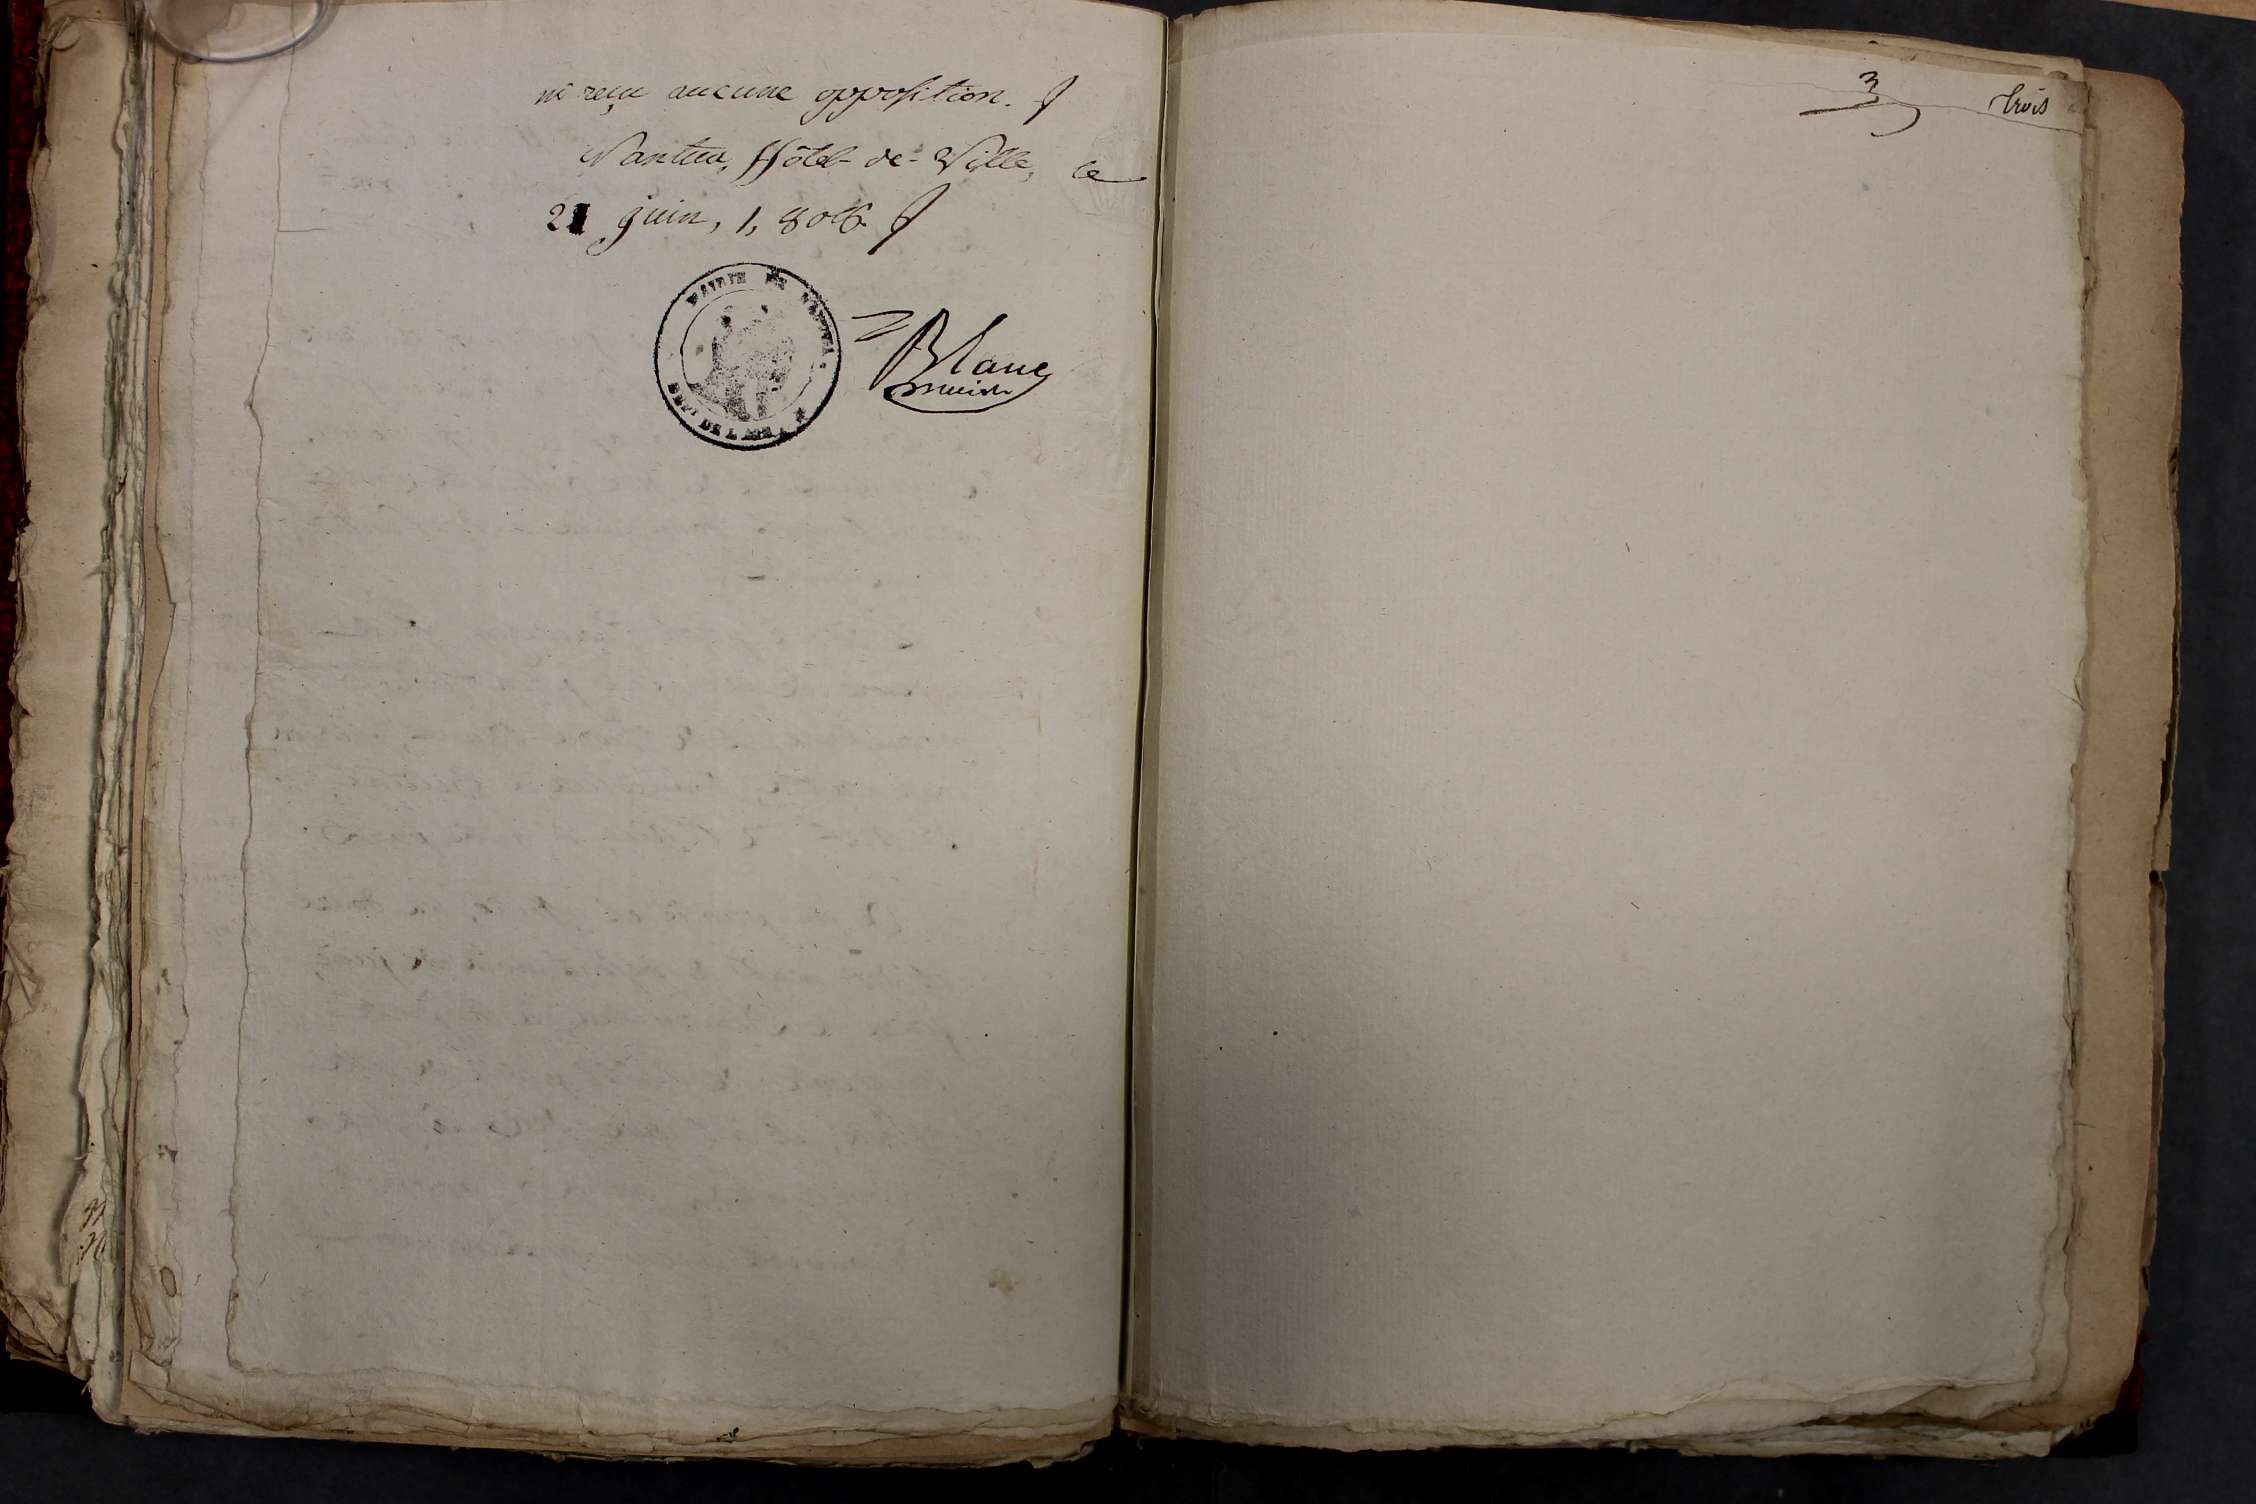 ni reçu aucune opposition.
Nantua, Hôtel-de-Ville, le
21 juin, 1,806.
MAIRIE DE NANTUA
DEPT DE L'AIN
Blanc
3
trois